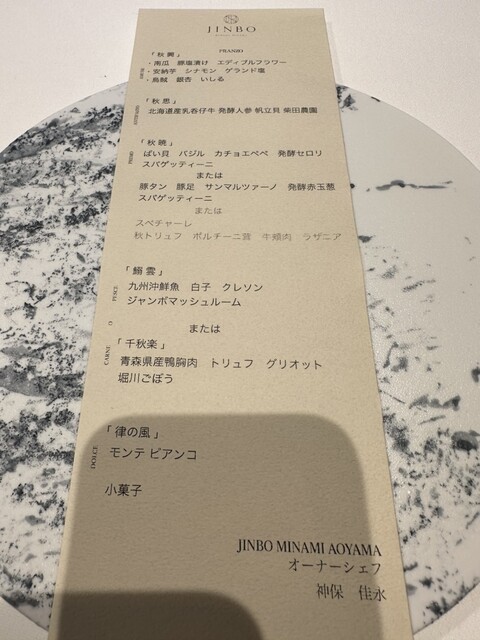 JINBO
PRANZO
「秋興」
・南瓜　豚塩漬け　エディブルフラワー
・安納芋　シナモン　ゲランド塩
・烏賊　銀杏　いしる
「秋思」
北海道産乳呑仔牛 発酵人参 帆立貝 柴田農園
PRIMO
「秋暁」
ばい貝　バジル　カチョエペペ　発酵セロリ
スパゲッティーニ
または
豚タン　豚足　サンマルツァーノ　発酵赤玉葱
スパゲッティーニ
または
スペチャーレ
秋トリュフ　ポルチーニ茸　牛頬肉　ラザニア
PESCE
「鰯雲」
九州沖鮮魚　白子　クレソン
ジャンボマッシュルーム
O
または
CARNE
「千秋楽」
青森県産鴨胸肉　トリュフ　グリオット
堀川ごぼう
DOLCE
「律の風」
モンテ ビアンコ
小菓子
JINBO MINAMI AOYAMA
オーナーシェフ
神保　佳永